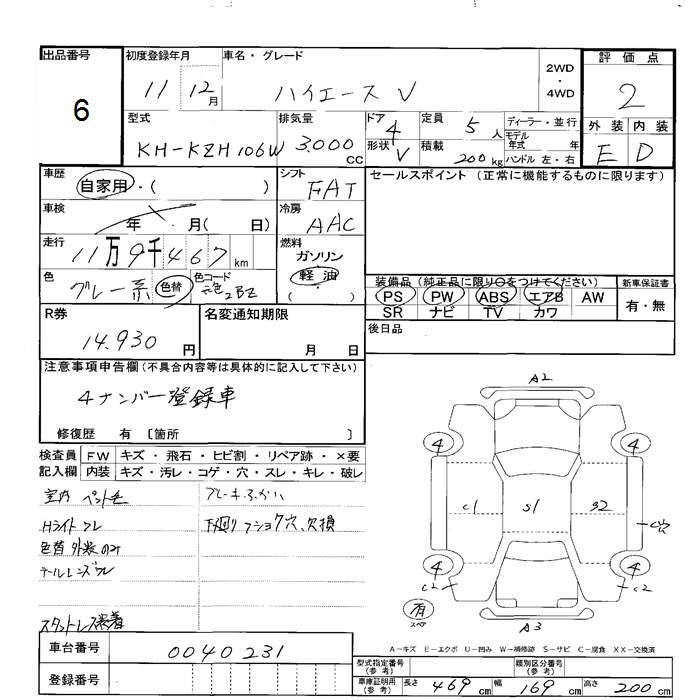 出品番号
6
初度登録年月
11 12月
車名・グレード
ハイエース V
2WD
・
4WD
評価点
2
外装 内装
E D
型式
KH-KZH106W
排気量
3.000
CC
ドア
4
形状
V
定員
5人
積載
200kg
ディーラー・並行
モデル
年式 年
ハンドル 左・右
車歴
自家用・( )
車検
年 月( 日)
走行
11万9千467km
色
グレー系 色替
色コード
2BZ
シフト
FAT
冷房
AAC
燃料
ガソリン
軽油
( )
セールスポイント(正常に機能するものに限ります)
装備品(純正品に限り○をつけてください)
PS PW ABS エアB AW
SR ナビ TV カワ
新車保証書
有・無
後日品
R券
14.930円
名変通知期限
月 日
注意事項申告欄(不具合内容等は具体的に記入して下さい)
4ナンバー登録車
修復歴 有〔箇所 〕
検査員 FW キズ・飛石・ヒビ割・リペア跡・×要
記入欄 内装 キズ・汚レ・コゲ・穴・スレ・キレ・破レ
室内
Hライト
下廻り 穴、欠損
色替 外装のみ
テールレンズ
A2
4 4
C1 S1 S2
C穴
4 4
C2 C2
有
A3
A-キズ E-エクボ U-凹み W-補修跡 S-サビ C-腐食 XX-交換済
車台番号 0040231
登録番号
型式指定番号(参考)
類別区分番号(参考)
車庫証明用(参考) 長さ 469cm 幅 169cm 高さ 200cm